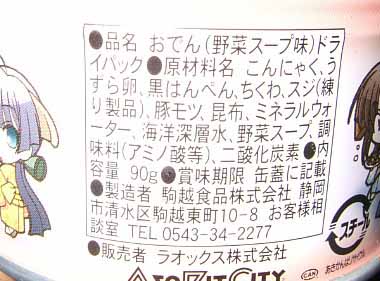 ●品名 おでん(野菜スープ味)ドラ
イパック●原材料名 こんにゃく、う
ずら卵、黒はんぺん、ちくわ、スジ(練
り製品)、豚モツ、昆布、ミネラルウォ
ーター、海洋深層水、野菜スープ、調
味料(アミノ酸等)、二酸化炭素●内
容量 90g●賞味期限 缶蓋に記載
●製造者 駒越食品株式会社 静岡
市清水区駒越東町10-8 お客様相
談室 TEL 0543-34-2277
●販売者 ラオックス株式会社
スチール
CAN
あきかんはリサイクル
ASOBITCITY